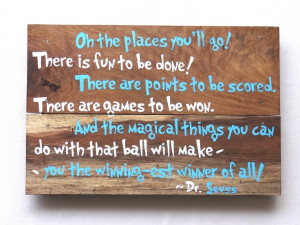 Oh the places you'll go!
There is fun to be done!
There are points to be scored.
There are games to be won.
And the magical things you can
do with that ball will make -
- you the winning-est winner of all!
~ Dr. Seuss